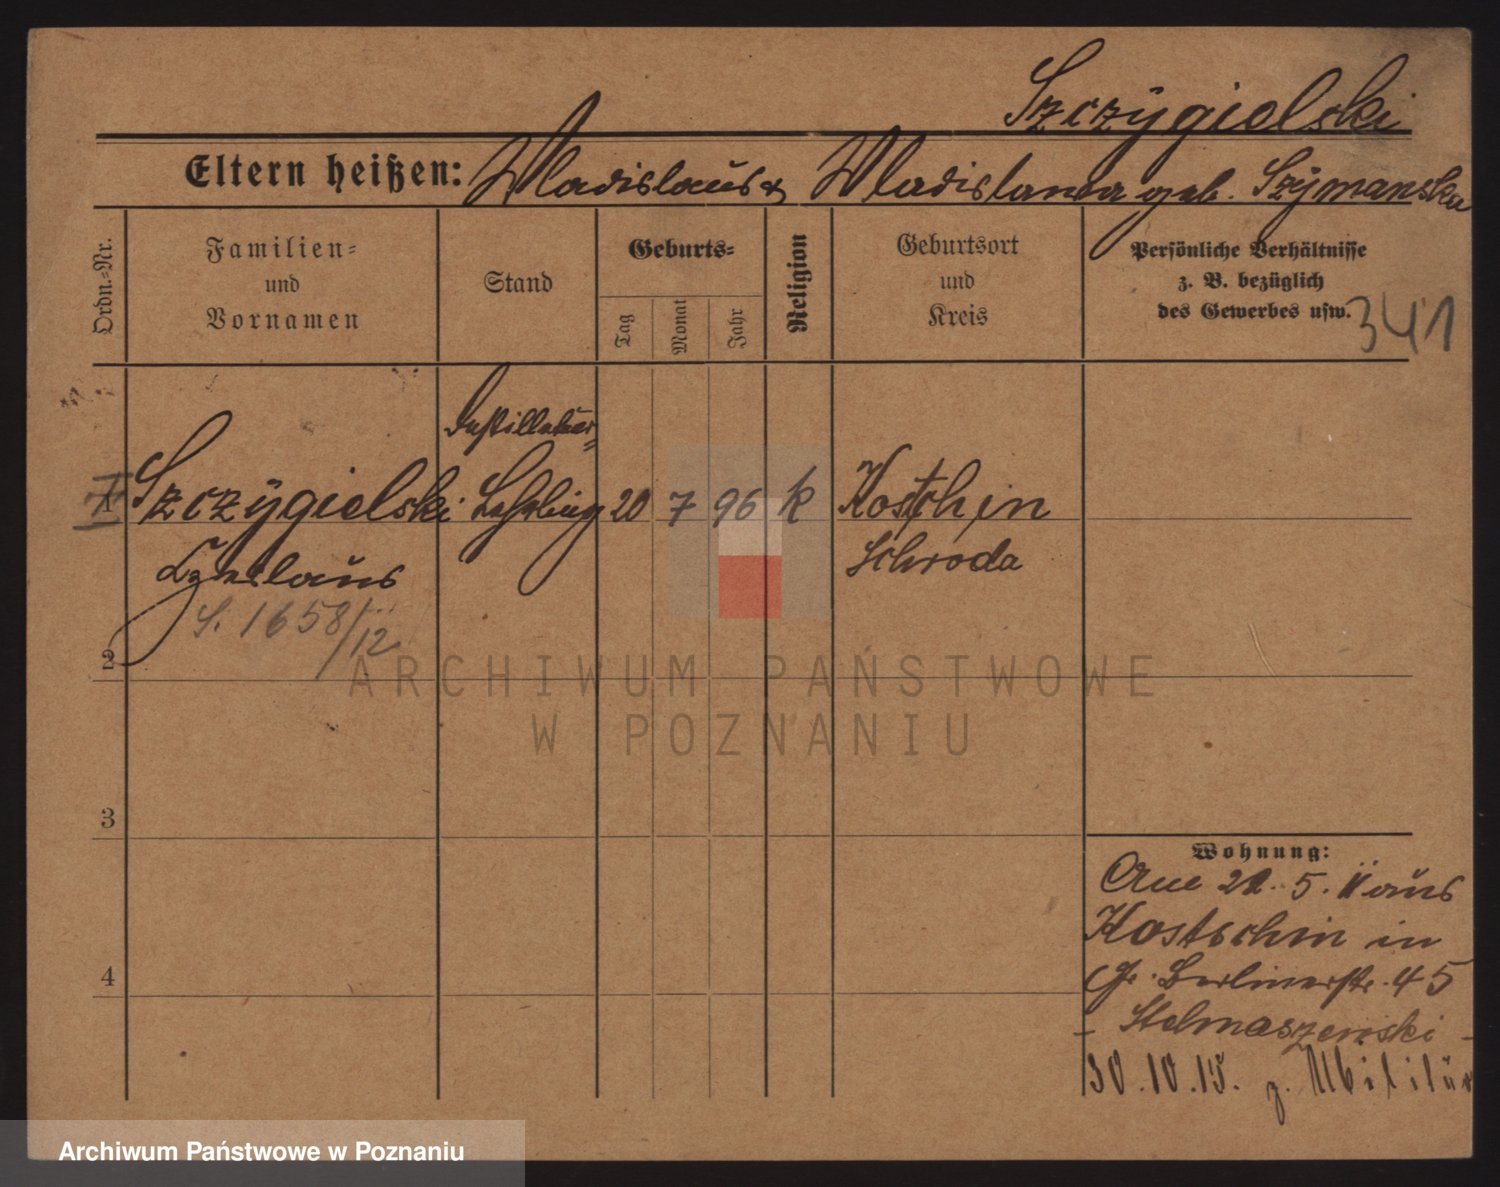 Szczygielski
Eltern heißen: Wladislaus & Wladislawa geb. Szymanska
Ordn.-Nr.
Familien-
und
Vornamen
Stand
Geburts-
Tag
Monat
Jahr
Religion
Geburtsort
und
Kreis
Persönliche Verhältnisse
z. B. bezüglich
des Gewerbes usw.
341
Destillateur-
1 Szczygielski Lehrling 20 7 96 k Kostschin
Czeslaus Schroda
S. 1658/12
2
3
4
Wohnung:
5. 11 aus
Kostschin in
Gr. Berlinerstr. 45
- Stelmaszewski -
30.10.15. z. Militär
ARCHIWUM PAŃSTWOWE
W POZNANIU
Archiwum Państwowe w Poznaniu